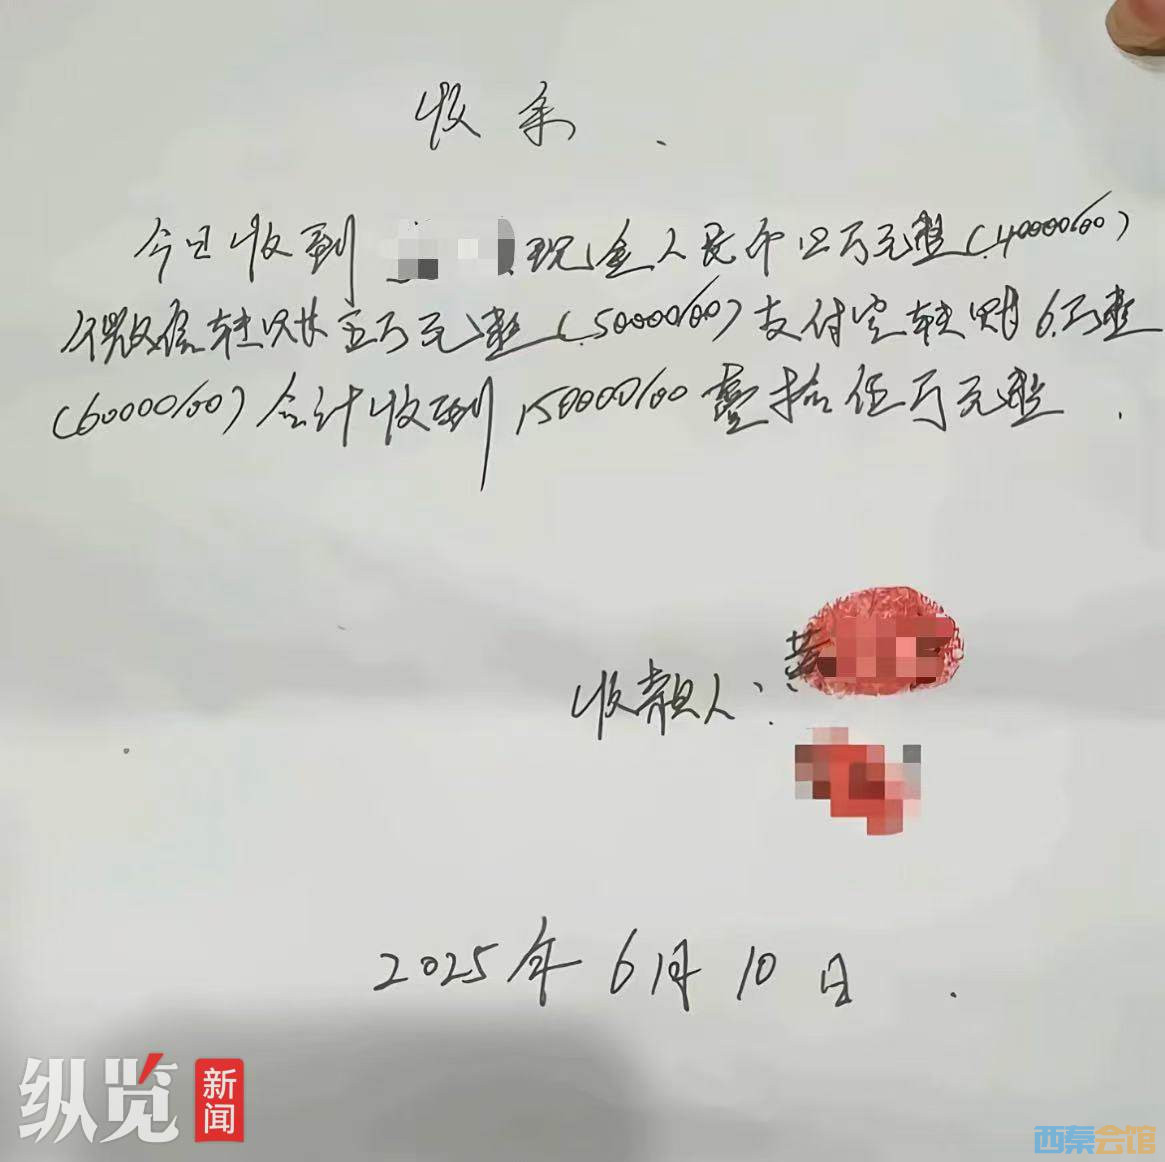 收条.
今日收到 现金人民币四万元整(40000/00)
微信转账五万元整(50000/00)支付宝转账6万整
(60000/00)合计收到150000/00壹拾伍万元整.
收款人: 黄
2025年6月10日.
纵览新闻
西秦会馆